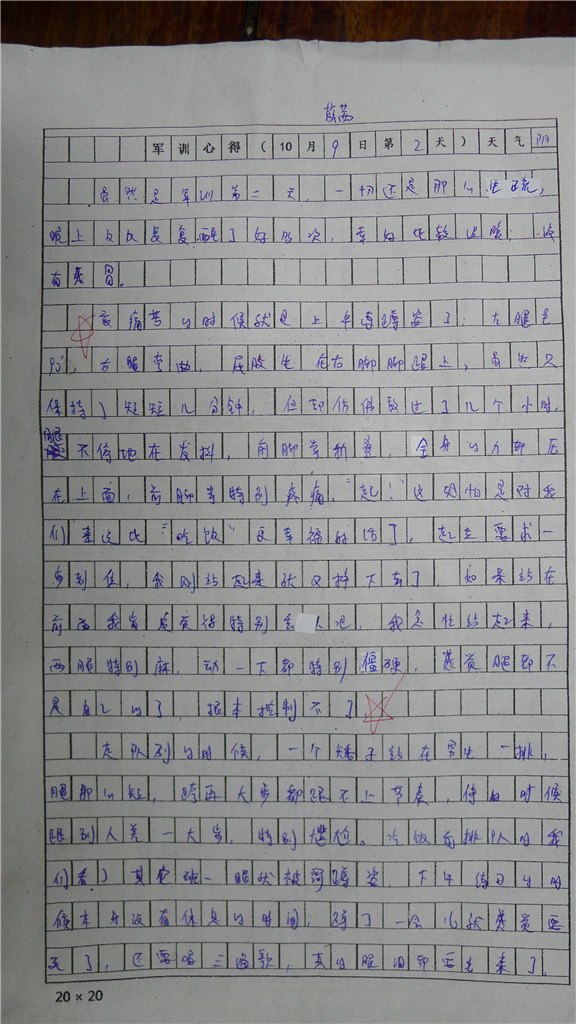 军训心得(10月9日第2天)天气阴
虽然是军训第二天,一切还是那么生疏,
晚上反反复复醒了好多次,幸好比较温暖,没
有感冒。
最痛苦的时候就是上午蹲蹲姿了:左腿呈
90°,右腿弯曲,屁股坐在右脚脚跟上,虽然只
保持了短短几分钟,但却仿佛就过了几个小时,
腿不停地在发抖,前脚掌斩着,全身的力都压
在上面,前脚掌特别疼痛,“起!”这恐怕是对我
们来说比“吃饭”更幸福的话了,起立要求一
步到位,我刚站起来就又掉下去了,如果站在
前面我肯定觉得特别丢人吧,我急忙站起来,
两腿特别麻,动一下都特别僵硬,感觉腿都不
是自己的了,根本控制不了。
走队列的时候,一个矮子站在男生一排,
腿那么短,跨再大步都跟不上节奏,停的时候
跟别人差一大步,特别尴尬。吃饭前排队时我
们看了其它班一眼就被罚蹲姿,下午练习的时
候本身没有休息的时间,蹲了一会儿就感觉要
死了,还要唱三遍歌,真的眼泪都要出来了。
20×20